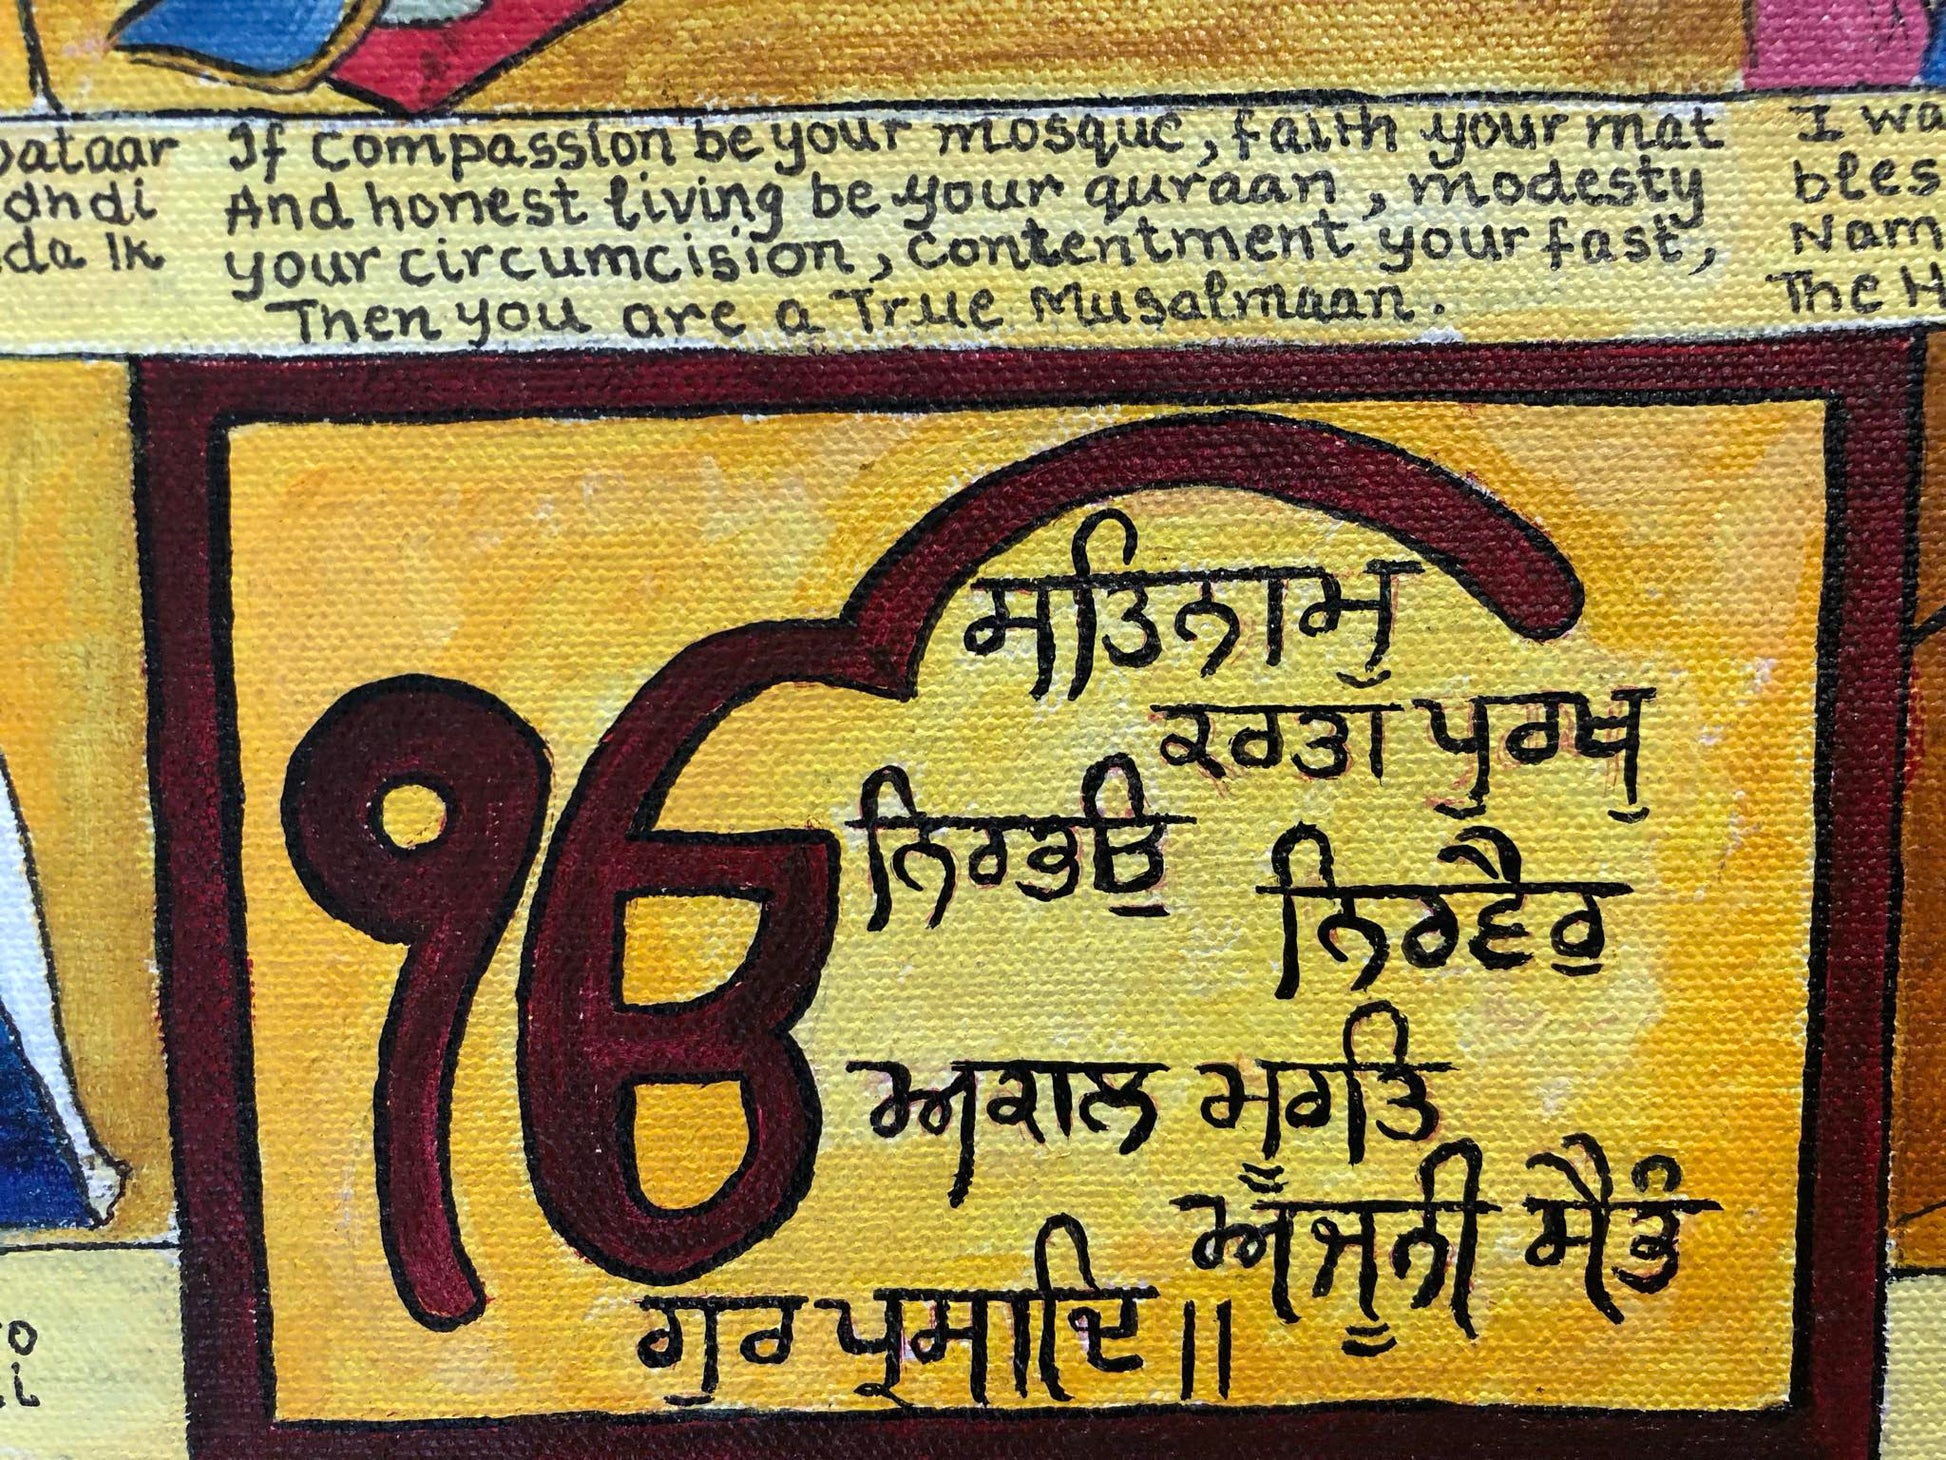 If compassion be your mosque, faith your mat
And honest living be your quraan, modesty
your circumcision, contentment your fast,
Then you are a True Musalmaan.
ੴ
ਸਤਿਨਾਮੁ
ਕਰਤਾ ਪੁਰਖੁ
ਨਿਰਭਉ
ਨਿਰਵੈਰੁ
ਅਕਾਲ ਮੂਰਤਿ
ਅਜੂਨੀ ਸੈਭੰ
ਗੁਰ ਪ੍ਰਸਾਦਿ ॥